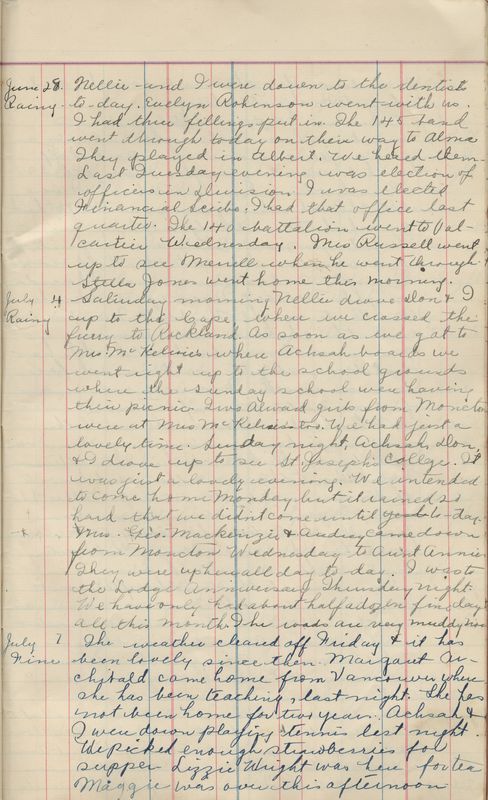 June 28. Nellie and I were down to the dentists
Rainy. to-day. Evelyn Robinson went with us.
I had three fellings put in. The 145 band
went through today on their way to Alma
They played in Albert. We hered them.
Last Tuesday evening was election of
officers in Division. I was elected
Financial Scribe. I had that office last
quarter. The 140 battalion went to Val-
cartier Wednesday. Mrs Russell went
up to see Merrill when he went through.
Stella Jones went home this morning.
July 4 Saturday morning Nellie drove Don & I
Rainy up to the Cape where we crossed the
ferry to Rockland. As soon as we got to
Mrs McKelvies where Achsah boards we
went right up to the school grounds
where the Sunday school were having
their picnic. Two Alward girls from Moncton
were at Mrs McKelvies too. We had just a
lovely time. Sunday night, Achsah, Don,
& I drove up to see St Joseph's College. It
was just a lovely evening. We intended
to come home Monday but it rained so
hard that we didnt come until to-day.
Mrs. Geo. Mackenzie & Audrey came down
from Moncton Wednesday to Aunt Annie
They were up here all day to day. I was to
the Lodge Anniversary Thursday night.
We have only had about half a dozen fine days
all this month. The roads are very muddy now
July 7 The weather cleared off Friday & it has
Fine been lovely since then. Margaret Ar-
chybald came home from Vancouver where
she has been teaching, last night. She has
not been home for two years. Achsah &
I were down playing tennis last night.
We picked enough strawberries for
supper. Lizzie Wright was here for tea
Maggie was over this afternoon